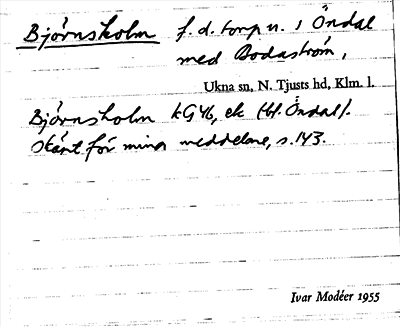 Björnsholm f. d. torp u. i Öndal
med Bodaström,
Ukna sn, N. Tjusts hd, Klm. l.
Björnsholm kG46, ek (bl. Öndal).
Okänt för mina meddelare, s. 143.
Ivar Modéer 1955